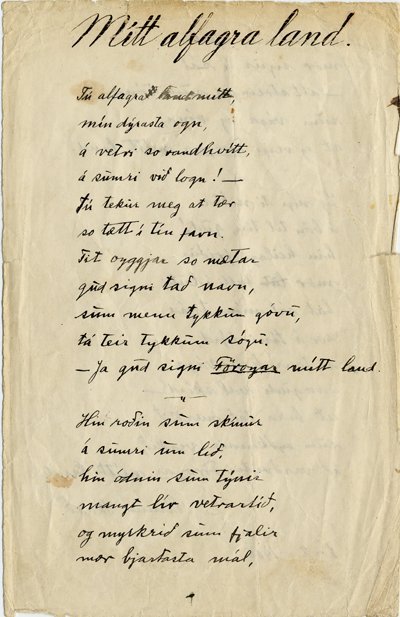 Mítt alfagra land.
Tú alfagra land mítt,
mín dýrasta ogn,
á vetri so randhvítt,
á sumri við logn! —
tú tekur meg at tær
so tætt í tín favn.
Tit oyggjar so mætar
gud signi tað navn,
sum menn tykkum góvu,
tá teir tykkum sógu.
— Ja gud signi Föroyar mítt land.
— " —
Hin roðin sum skínur
á sumri um líð,
hin ódnin sum týnir
mangt lív vetrartíð,
og myrkrið sum fjalir
mær bjartasta mál,